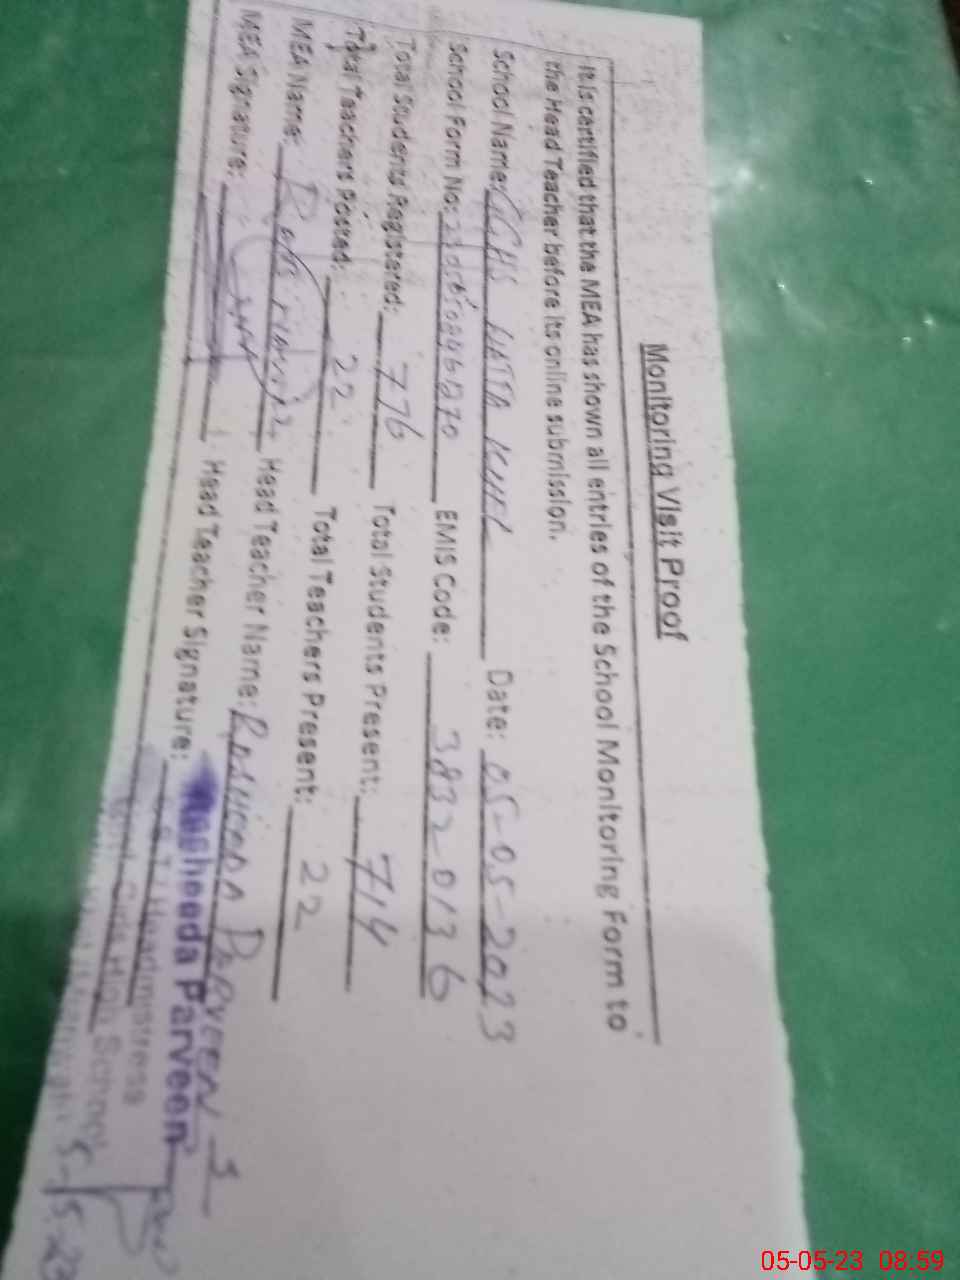 Monitoring Visit Proof
It is certified that the MEA has shown all entries of the School Monitoring Form to
the Head Teacher before its online submission.
School Name: GGHS WATTA KHEL Date: 05-05-2023
School Form No: EMIS Code: 38320136
Total Students Registered: 776 Total Students Present: 714
Total Teachers Posted: 22 Total Teachers Present: 22
MEA Name: Head Teacher Name: RASHEEDA PARVEEN
MEA Signature: Head Teacher Signature:
Rasheeda Parveen
Headmistress
Girls High School
5-5-23
05-05-23 08:59